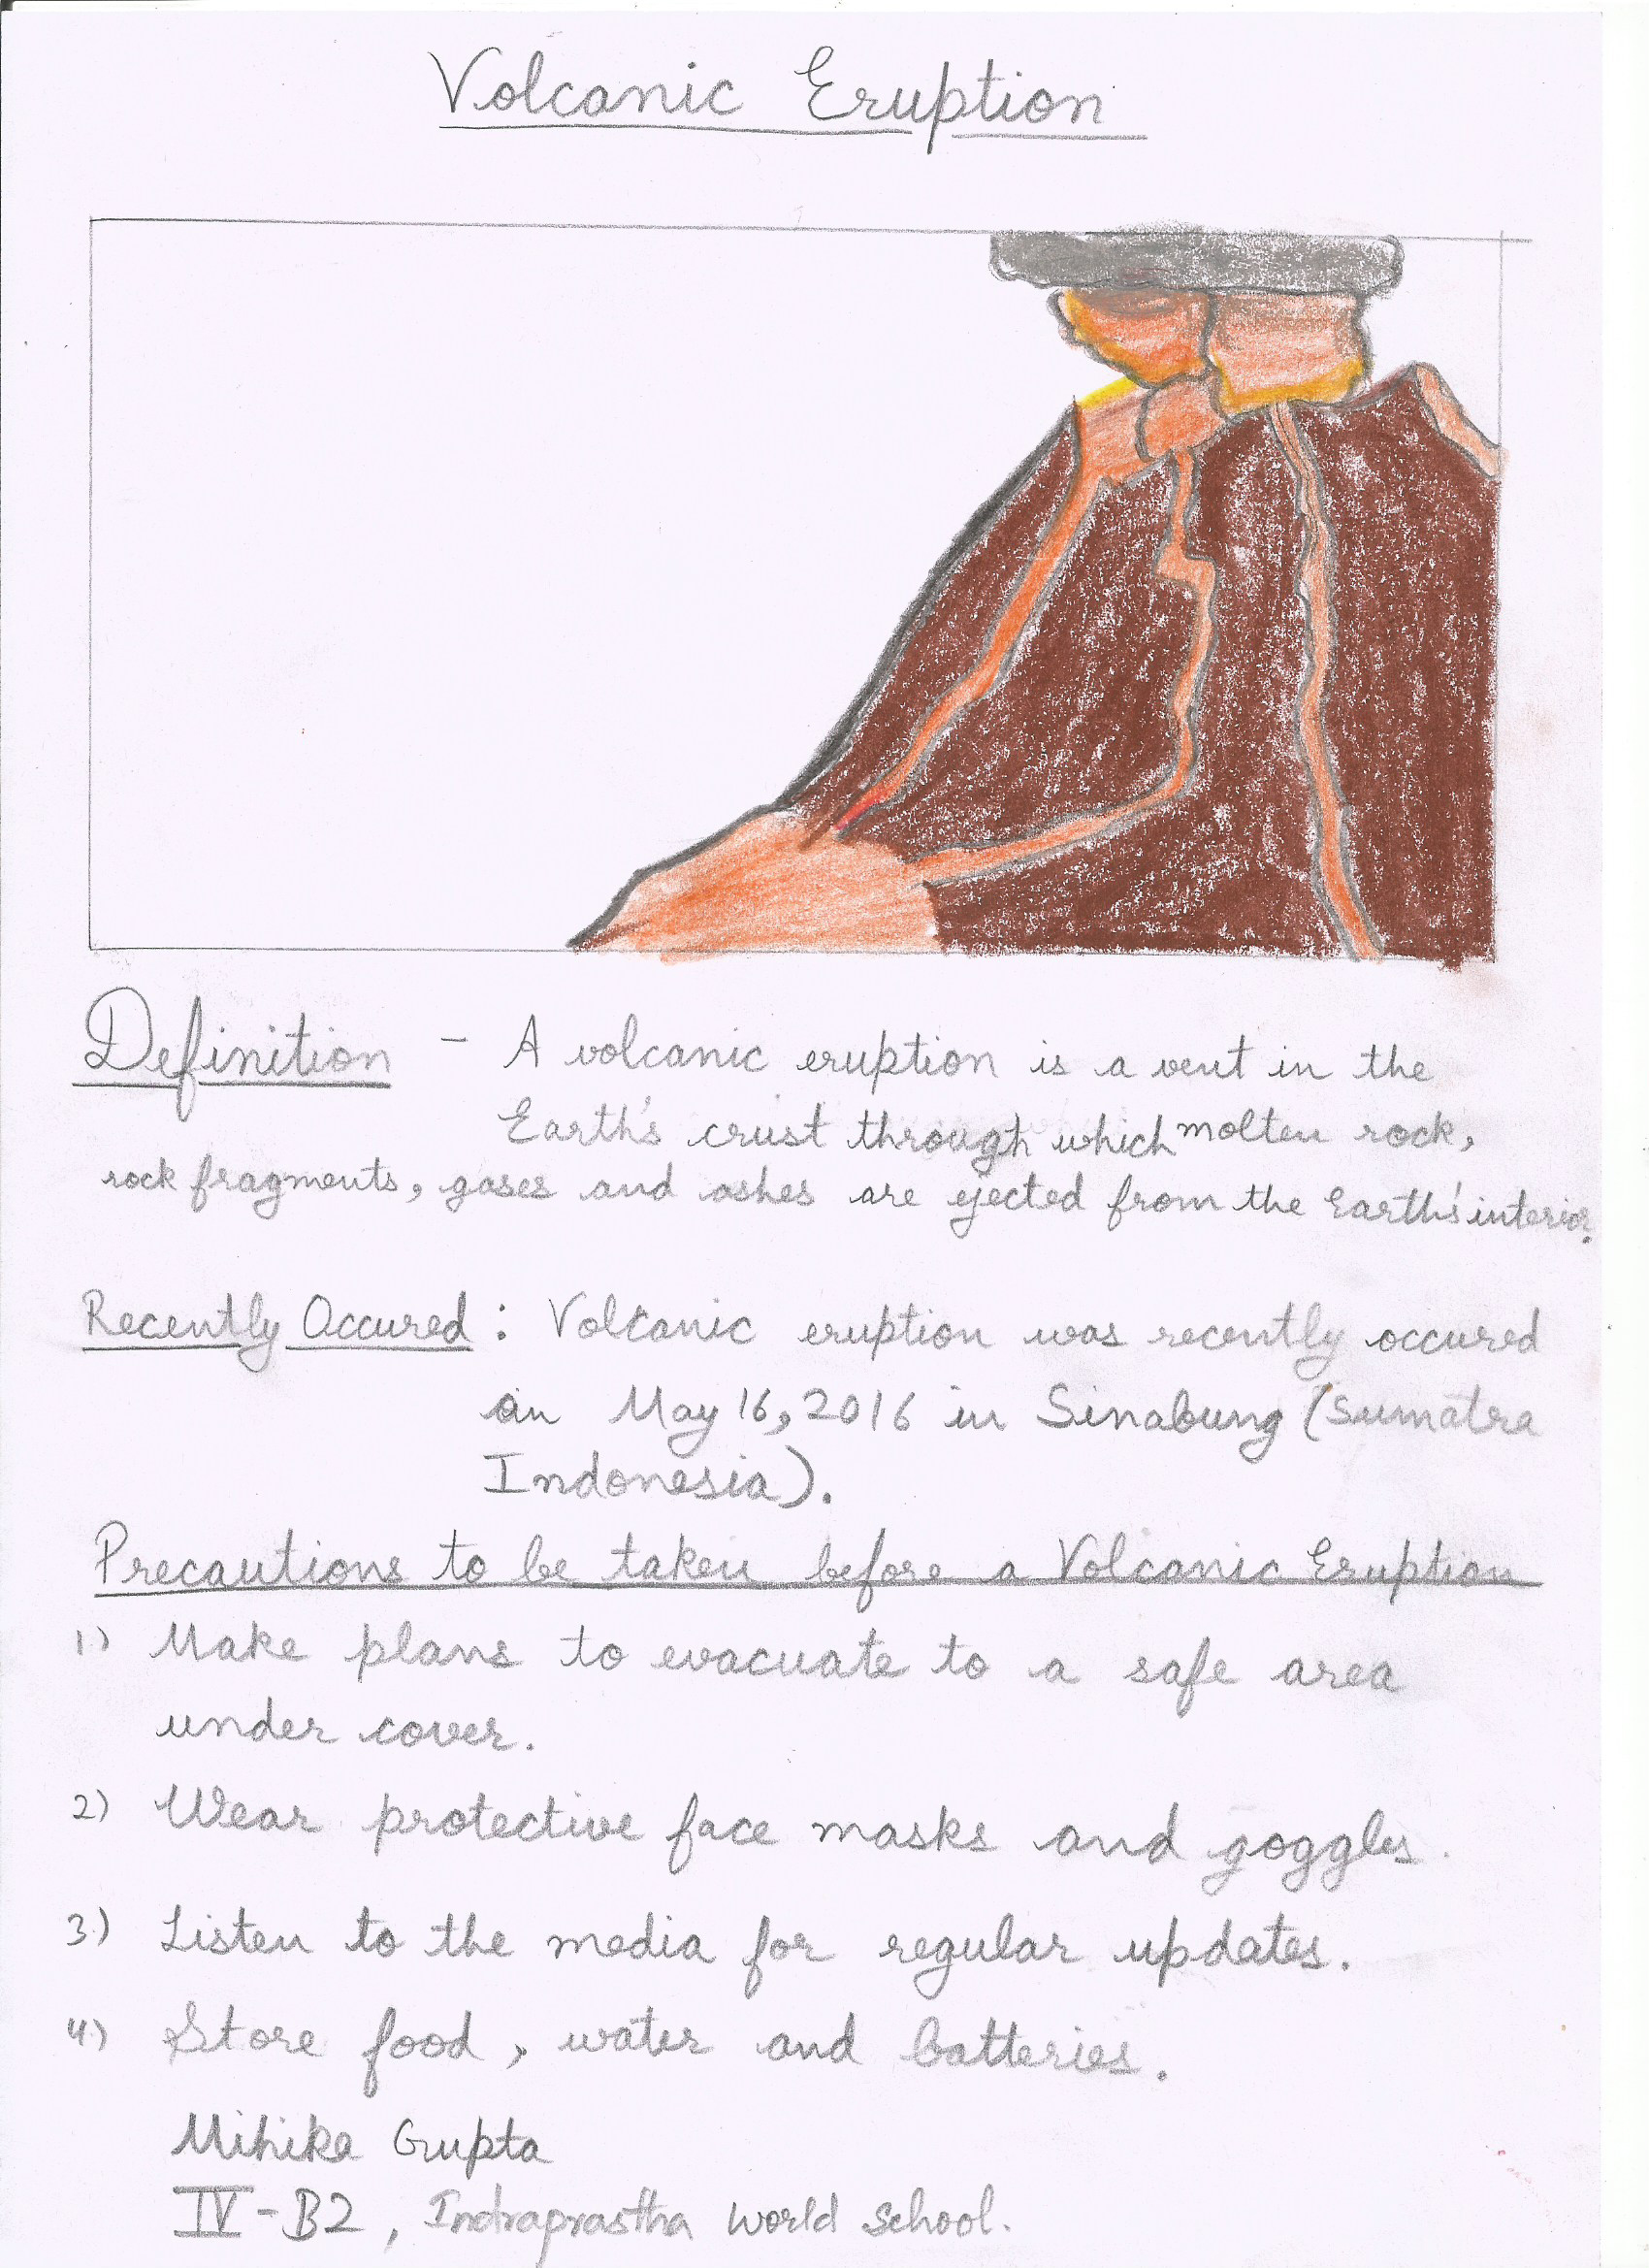 Volcanic Eruption
Definition - A volcanic eruption is a vent in the
Earth's crust through which molten rock,
rock fragments, gases and ashes are ejected from the Earth's interior.
Recently Occured : Volcanic eruption was recently occured
on May 16, 2016 in Sinabung (Sumatra
Indonesia).
Precautions to be taken before a Volcanic Eruption
1) Make plans to evacuate to a safe area
under cover.
2) Wear protective face masks and goggles.
3.) Listen to the media for regular updates.
4.) Store food, water and batteries.
Mihika Gupta
IV-B2, Indraprastha World School.